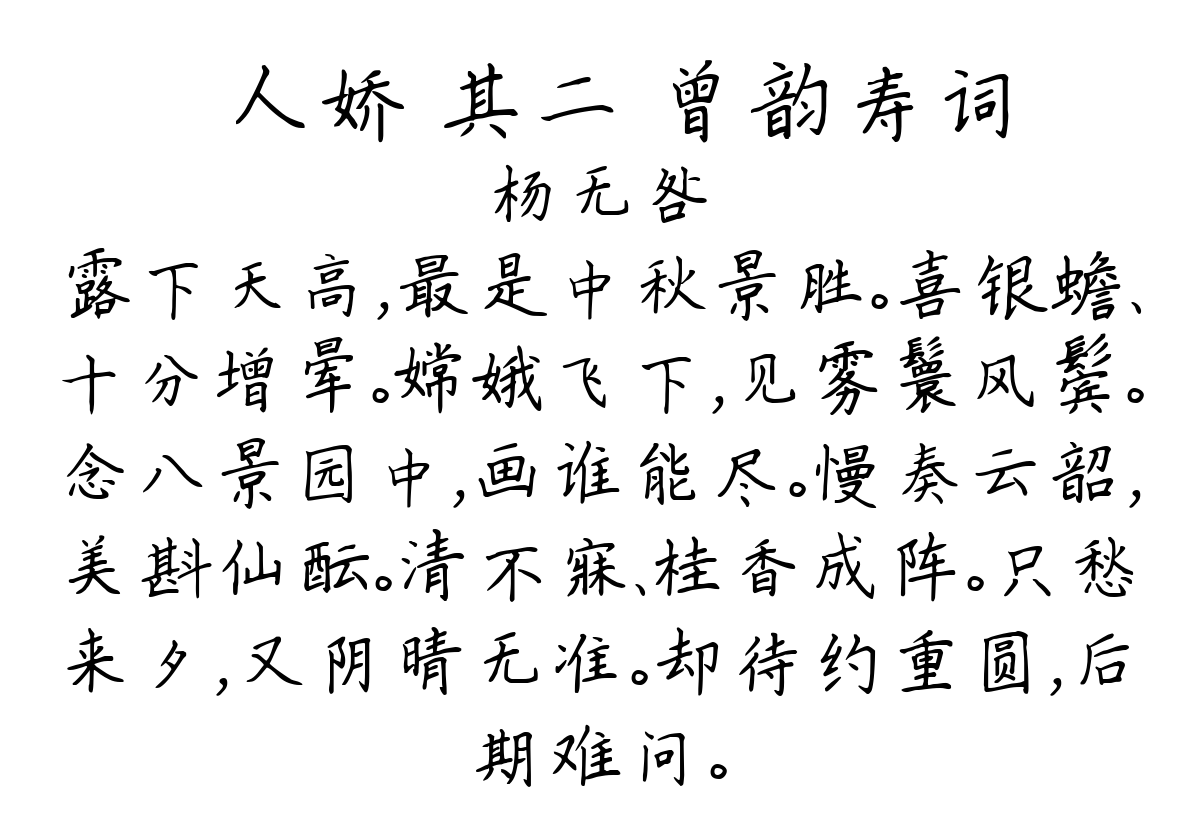 人娇 其二 曾韵寿词
杨无咎
露下天高,最是中秋景胜。喜银蟾、
十分增晕。嫦娥飞下,见雾鬟风鬓。
念八景园中,画谁能尽。慢奏云韶,
美斟仙酝。清不寐、桂香成阵。只愁
来夕,又阴晴无准。却待约重圆,后
期难问。